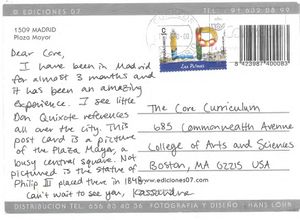 © EDICIONES 07
TL. 91 602 08 99
1509 MADRID
Plaza Mayor
Las Palmas
8423987400083
Dear Core,
I have been in Madrid
for almost 3 months and
it has been an amazing
experience. I see little
Don Quixote references
all over the city. This
post card is a picture
of the Plaza Mayor, a
busy central square. Not
pictured is the statue of
Philip III placed there in 1848.
Can't wait to see you, Kassandra
The Core Curriculum
685 Commonwealth Avenue
College of Arts and Sciences
Boston, MA 02215 USA
www.ediciones07.com
DISTRIBUCION TEL. 656 83 40 36
FOTOGRAFIA Y DISEÑO : HANS LOHR